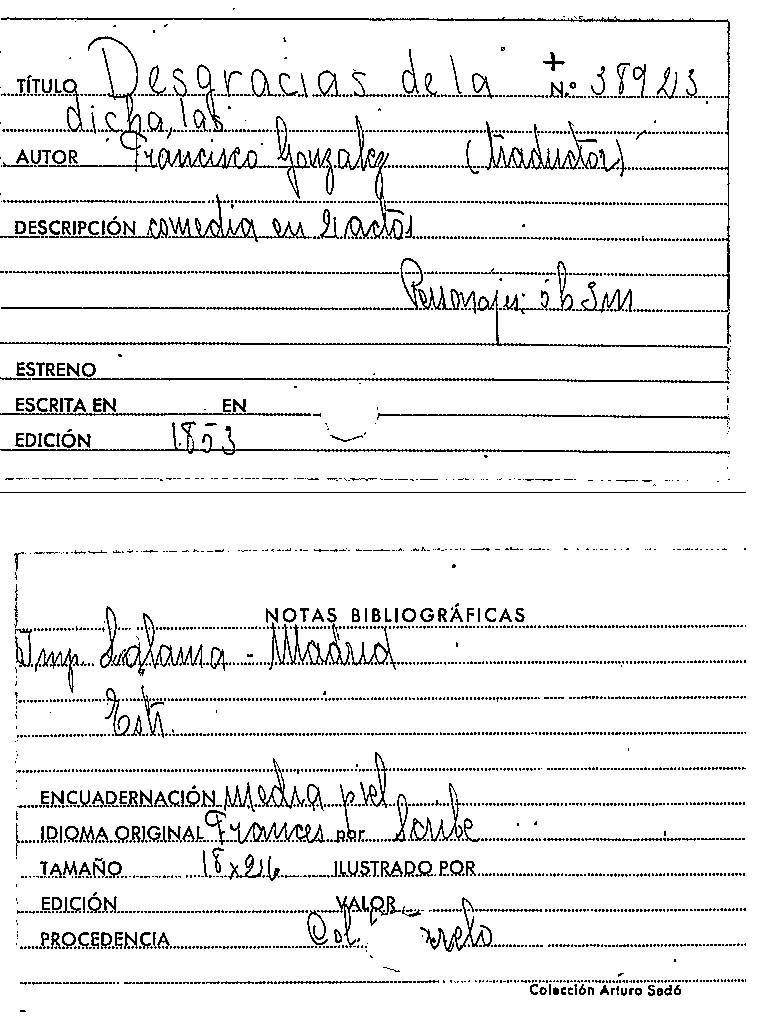 TÍTULO Desgracias de la + N.º 38923
dicha, las
AUTOR Francisco Gonzalez (traductor)
DESCRIPCIÓN comedia en 2 actos
Personajes: 5h 3m
ESTRENO
ESCRITA EN EN
EDICIÓN 1853
NOTAS BIBLIOGRÁFICAS
Imp. Lalama - Madrid
Estr.
ENCUADERNACIÓN media piel
IDIOMA ORIGINAL Frances por Scribe
TAMAÑO 18x26 ILUSTRADO POR
EDICIÓN VALOR
PROCEDENCIA Col.
Colección Arturo Sedó